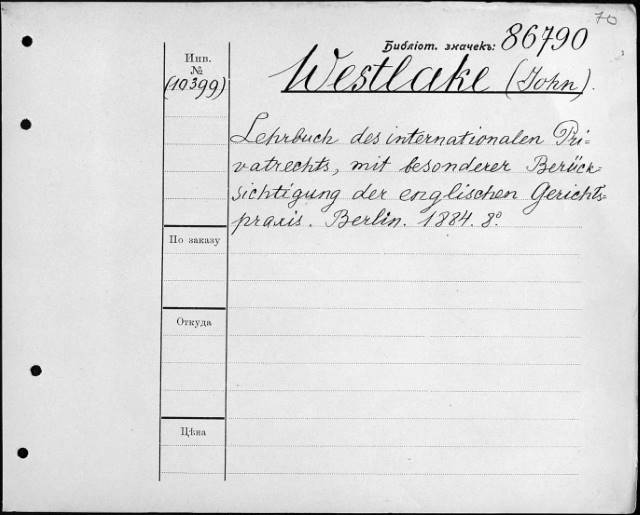 70
Библіот. значекъ: 86790
Инв.
№
(10399)
Westlake (John).
Lehrbuch des internationalen Pri-
vatrechts, mit besonderer Berück-
sichtigung der englischen Gerichts-
praxis. Berlin. 1884. 8º
По заказу
Откуда
Цѣна